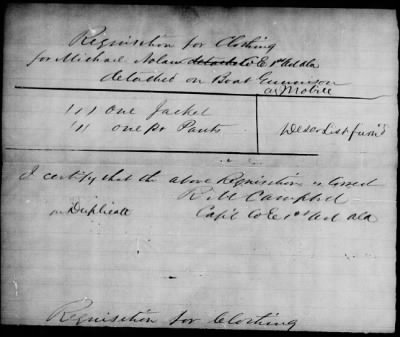 Requisition for Clothing
for Michael Nolan detach Co E 1st Art Ala
detached on Boat Gunnison
at Mobile
1/1/1 one Jacket
"/1 one pr Pants
Desc List furn'd
I certify that the above Requisition is correct
R. M Campbell
Capt Co E 1st Art Ala
in Duplicate
Requisition for Clothing